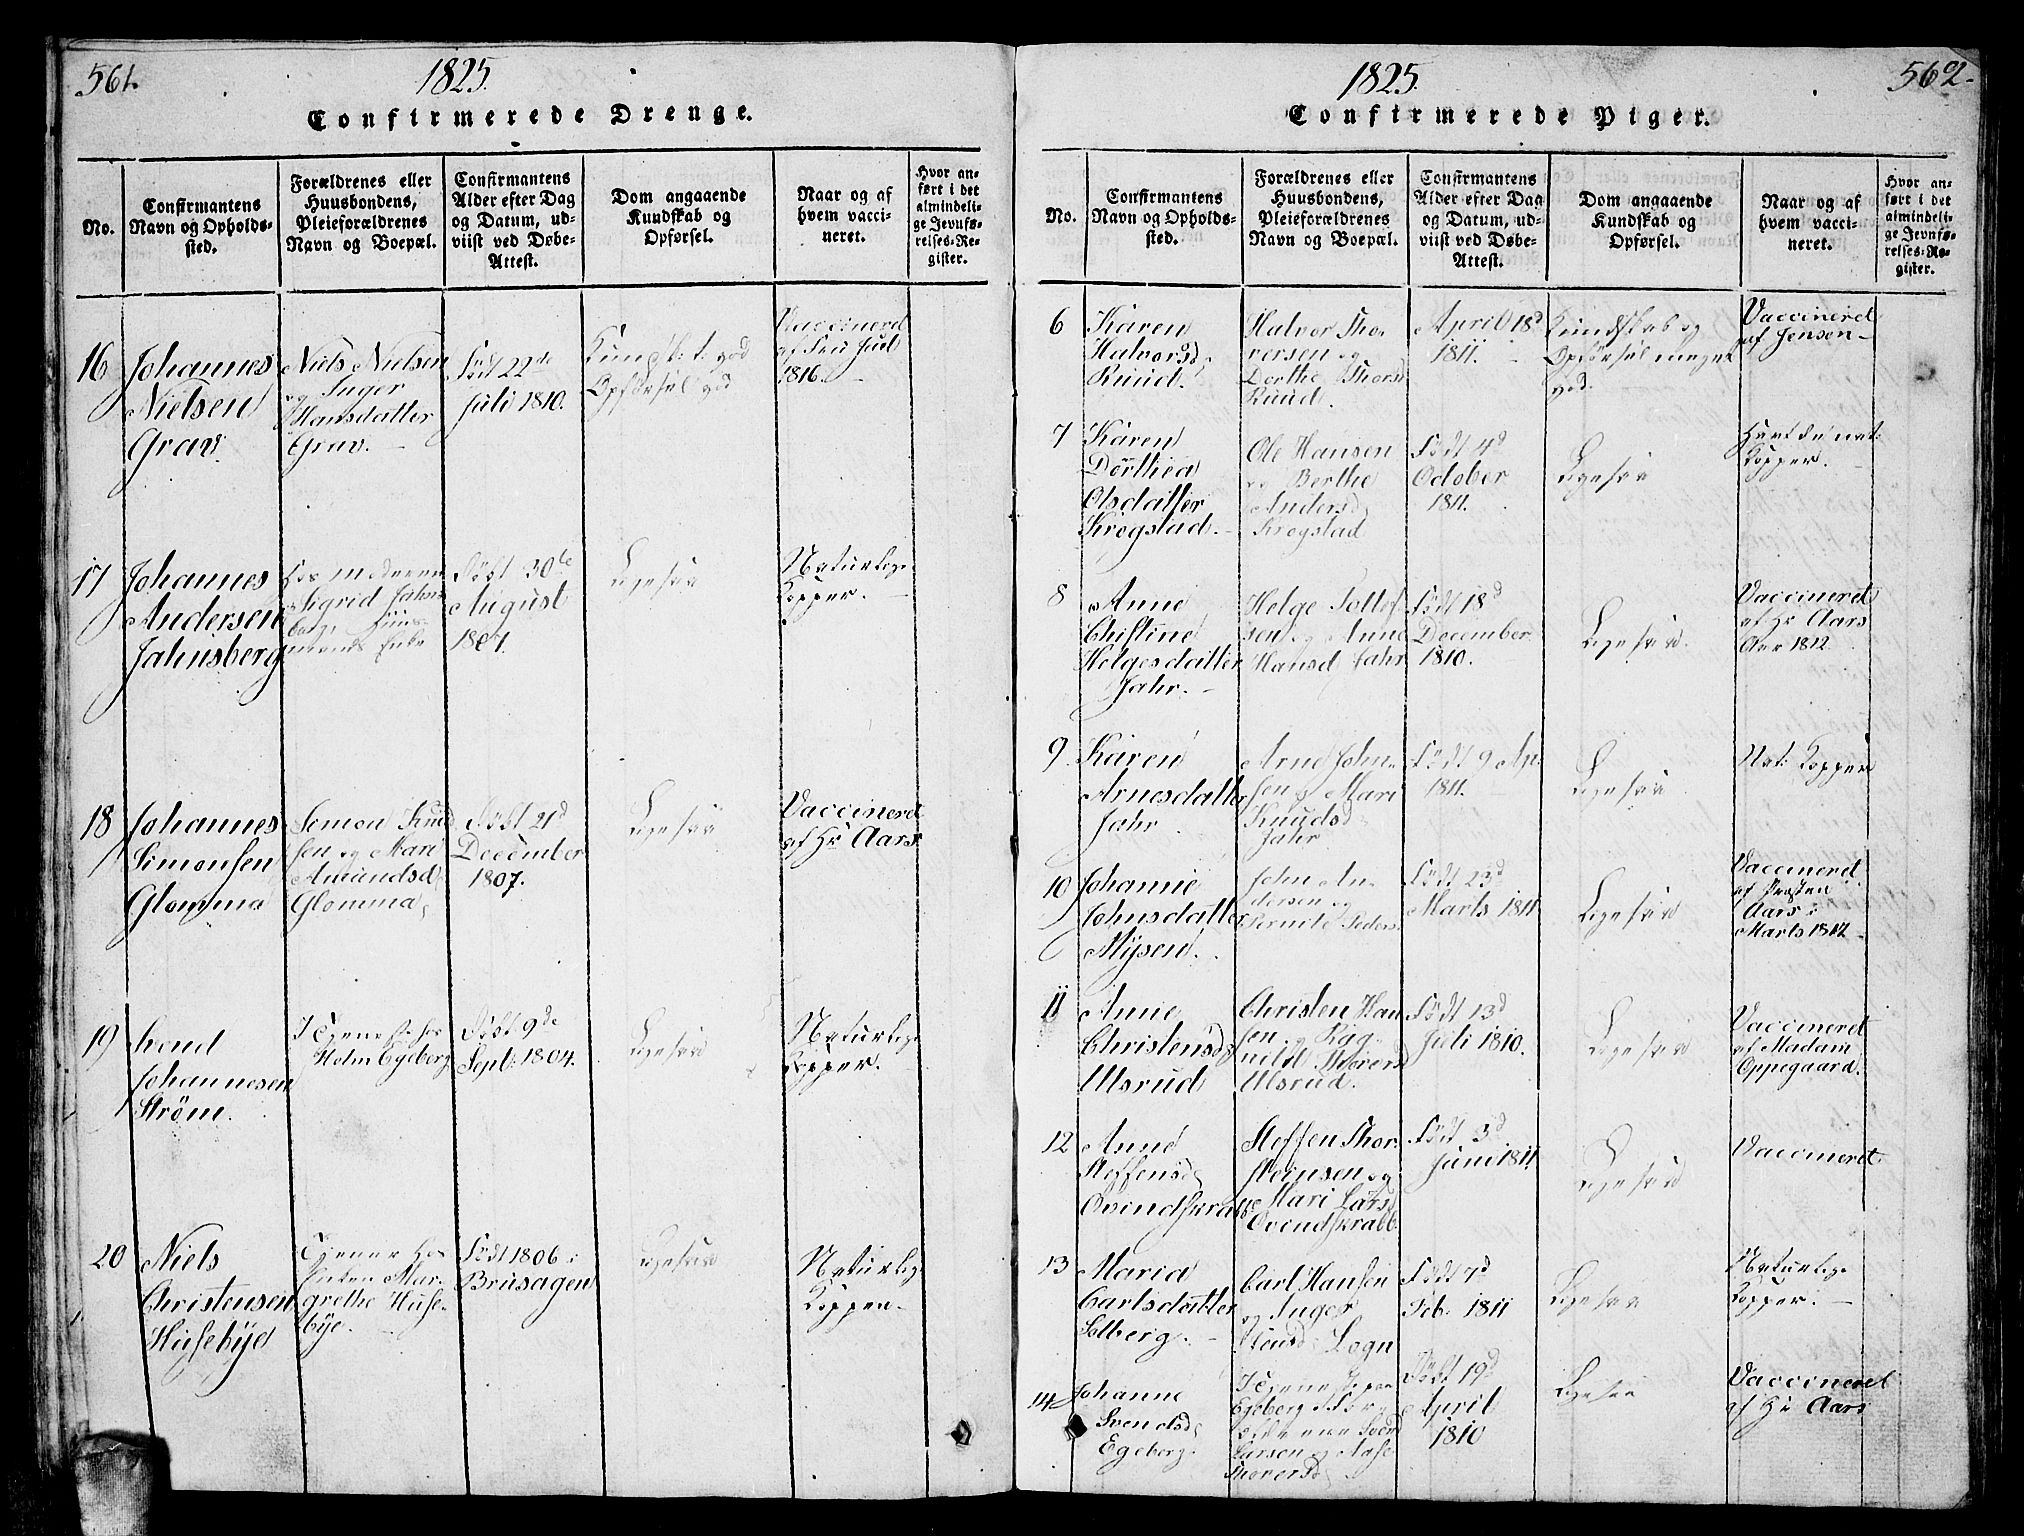 561.
1825.
Confirmerede Drenge.
No.
Confirmantens
Navn og Opholds-
sted.
Forældrenes eller
Huusbondens,
Pleieforældrenes
Navn og Boepæl.
Confirmantens
Alder efter Dag
og Datum, ud-
viist ved Døbe-
Attest.
Dom angaaende
Kundskab og
Opførsel.
Naar og af
hvem vacci-
neret.
Hvor an-
ført i det
almindeli-
ge Jevnfø-
relses-Re-
gister.
16
Johannes
Nielsen
Grav
Niels Nielsen
og Inger
Hansdatter
Grav.
Født 22de
Juli 1810.
god
Opførsel god
Vaccinerd
af
1816.
17
Johannes
Andersen
Jahnsberg
Hos Moderen
Sigrid Jahns
berg, Huus-
mands Enke
Født 30de
August
1807.
Ligesaa
Naturlige
Kopper.
18
Johannes
Simonsen
Glomma
Semon Knud
sen og Mari
Amundsd
Glomma,
Født 21d
December
1807.
Ligesaa
Vaccineret
af Hr Aars
19
Johannesen
Strøm.
I Tjeneste hos
Holm Egeberg
Født 9de
Sept: 1804.
Ligesaa
Naturlige
Kopper.
20
Niels
Christensen
Husebye
Tjener hos
Enken Mar-
grethe Huse-
bye.
Født 1806 i
Brusagen
Ligesaa
Naturlige
Kopper.
562.
1825.
Confirmerede Piger.
No.
Confirmantens
Navn og Opholds-
sted.
Forældrenes eller
Huusbondens,
Pleieforældrenes
Navn og Boepæl.
Confirmantens
Alder efter Dag
og Datum, ud-
viist ved Døbe-
Attest.
Dom angaaende
Kundskab og
Opførsel.
Naar og af
hvem vacci-
neret.
Hvor an-
ført i det
almindeli-
ge Jevnfø-
relses-Re-
gister.
6
Karen
Halvorsd.
Ruud.
Halvor Tho-
versen og
Dorthe Thorsd
Ruud.
April 18d
1811.
Kundskab og
Opførsel meget
god.
Vaccineret
af Jensen
7
Karen
Dorthea
Olsdatter
Krogstad.
Ole Hansen
og Berthe
Andersd
Krogstad
Født 4d
October
1811.
Ligesaa
Havt de nat:
Kopper.
8
Anne
Christine
Helgesdatter
Jahr.
Helge Tollef
sen og Anne
Hansd Jahr
Født 18d
December
1810.
Ligesaa
Vaccineret
af Hr Aars
1812
9
Karen
Arnesdatter
Jahr
Arne John-
sen og Mari
Knudsd
Jahr
Født 9 Ap.
1811.
Ligesaa
Nat: Kopper
10
Johanne
Johnsdatter
Mysen.
John An-
dersen og
Pernite Peders
Født 23d
Marts 1811
Ligesaa
Vaccineret
af Præsten
Aars i
Marts 1812
11
Anne
Christensd
Ulsrud
Christen Han
sen og Rag
nild Thorers
Ulsrud.
Født 13d
Juli 1810.
Ligesaa
Vaccineret
af Madam
Oppegaard.
12
Anne
Steffensd
Ovindskrabb
Steffen Thor-
steinsen og
Mari Larsd
Ovindskrabb
Født 3d
Juni 1811.
Ligesaa
Vaccineret
13
Maria
Carlsdatter
Solberg.
Carl Hansen
og Inger
Logn
Født 7d
Feb. 1811
Ligesaa
Naturlige
Kopper.
14
Johanne
Svendsd
Egeberg
I Tjeneste paa
Egeberg
Svend
Larsen og Aase
Thorersd
Født 19d
April
1810
Ligesaa
Vaccineret
af Hr Aars